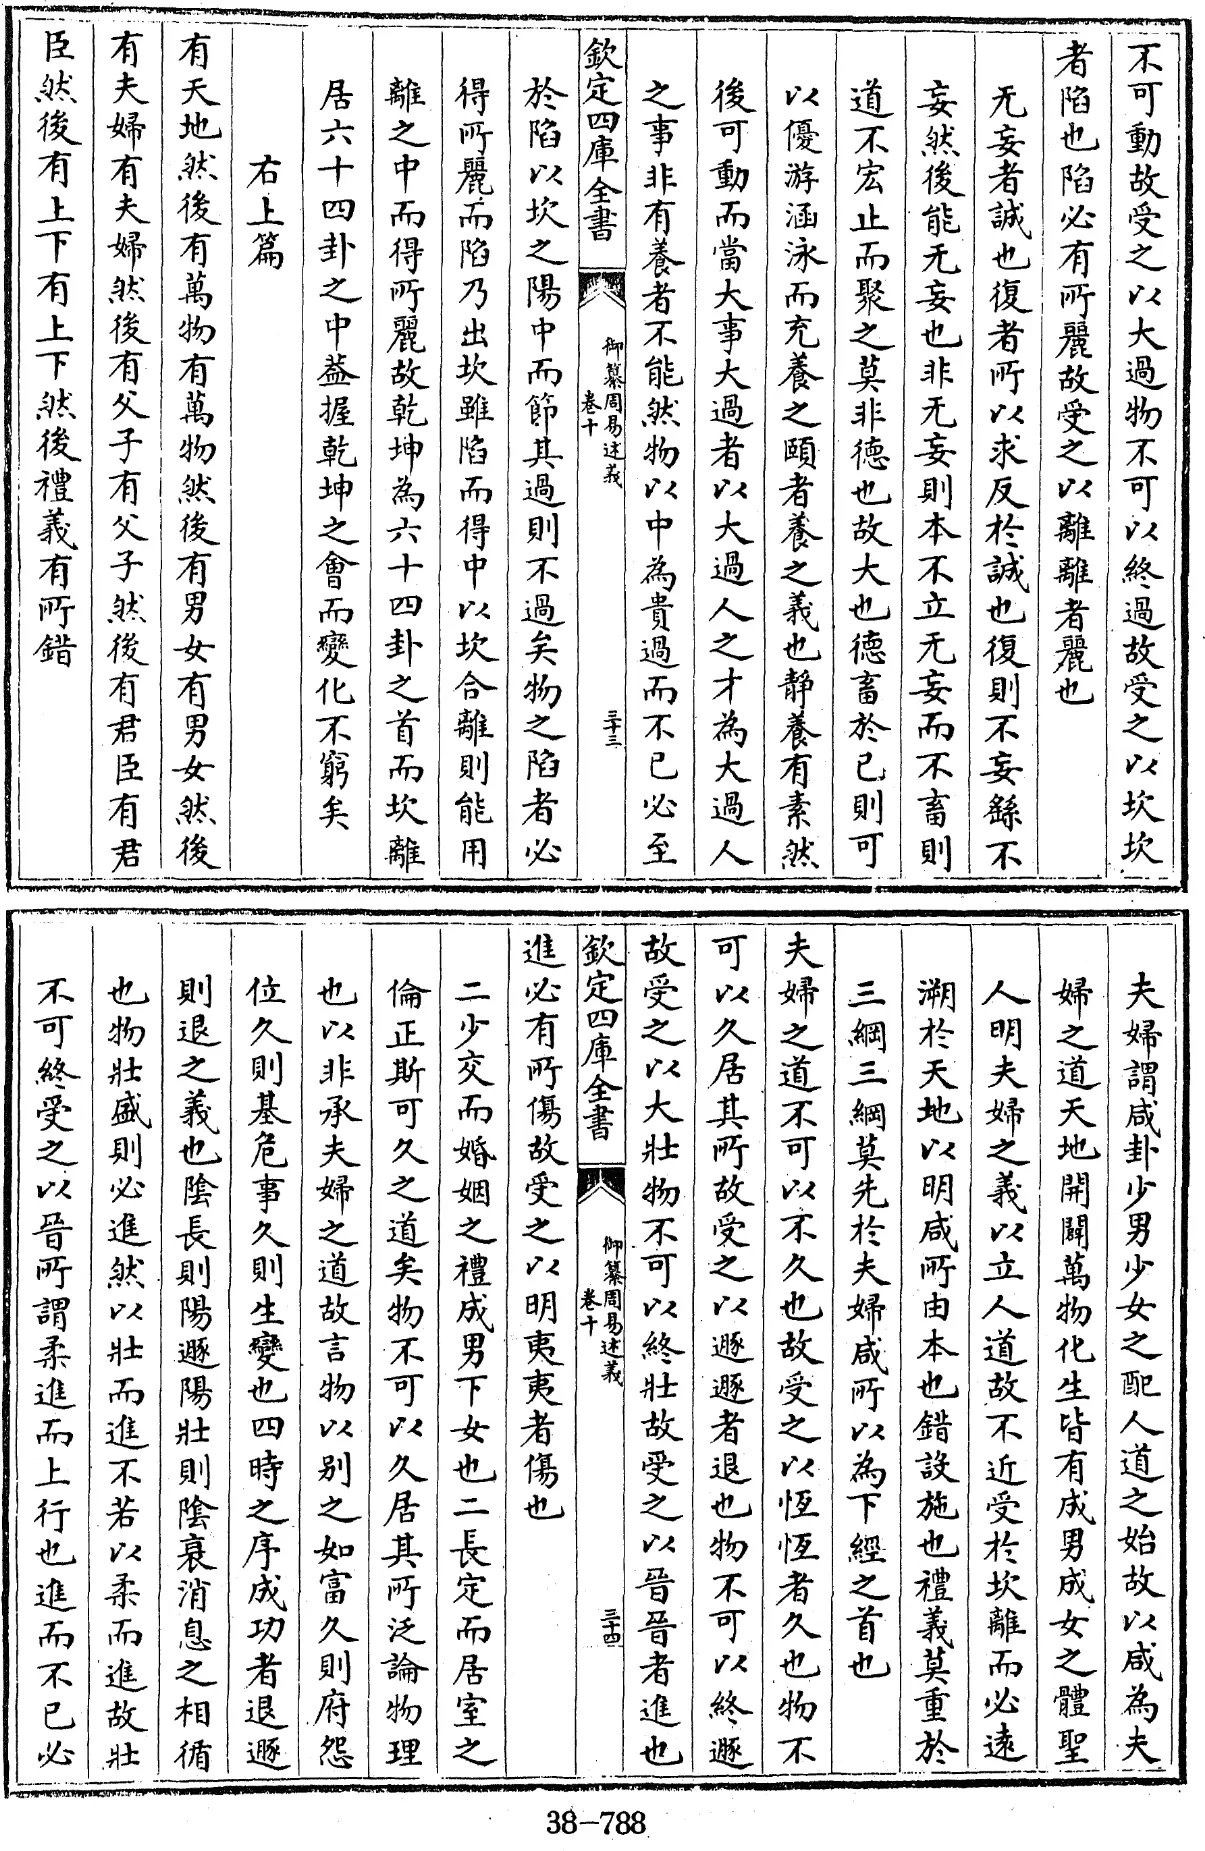 不可動故受之以大過物不可以終過故受之以坎坎
者陷也陷必有所麗故受之以離離者麗也
无妄者誠也復者所以求反於誠也復則不妄繇不
妄然後能无妄也非无妄則本不立无妄而不畜則
道不宏止而聚之莫非德也故大也德畜於己則可
以優游涵泳而充養之頤者養之義也靜養有素然
後可動而當大事大過者以大過人之才為大過人
之事非有養者不能然物以中為貴過而不已必至
欽定四庫全書
御纂周易述義
卷十
三十三
於陷以坎之陽中而節其過則不過矣物之陷者必
得所麗而陷乃出坎雖陷而得中以坎合離則能用
離之中而得所麗故乾坤為六十四卦之首而坎離
居六十四卦之中葢握乾坤之會而變化不窮矣
右上篇
有天地然後有萬物有萬物然後有男女有男女然後
有夫婦有夫婦然後有父子有父子然後有君臣有君
臣然後有上下有上下然後禮義有所錯
夫婦謂咸卦少男少女之配人道之始故以咸為夫
婦之道天地開闢萬物化生皆有成男成女之體聖
人明夫婦之義以立人道故不近受於坎離而必遠
溯於天地以明咸所由本也錯設施也禮義莫重於
三綱三綱莫先於夫婦咸所以為下經之首也
夫婦之道不可以不久也故受之以恆恆者久也物不
可以久居其所故受之以遯遯者退也物不可以終遯
故受之以大壯物不可以終壯故受之以晉晉者進也
欽定四庫全書
御纂周易述義
卷十
三十四
進必有所傷故受之以明夷夷者傷也
二少交而婚姻之禮成男下女也二長定而居室之
倫正斯可久之道矣物不可以久居其所泛論物理
也以非承夫婦之道故言物以别之如富久則府怨
位久則基危事久則生變也四時之序成功者退遯
則退之義也陰長則陽遯陽壯則陰衰消息之相循
也物壯盛則必進然以壯而進不若以柔而進故壯
不可終受之以晉所謂柔進而上行也進而不已必
38-788